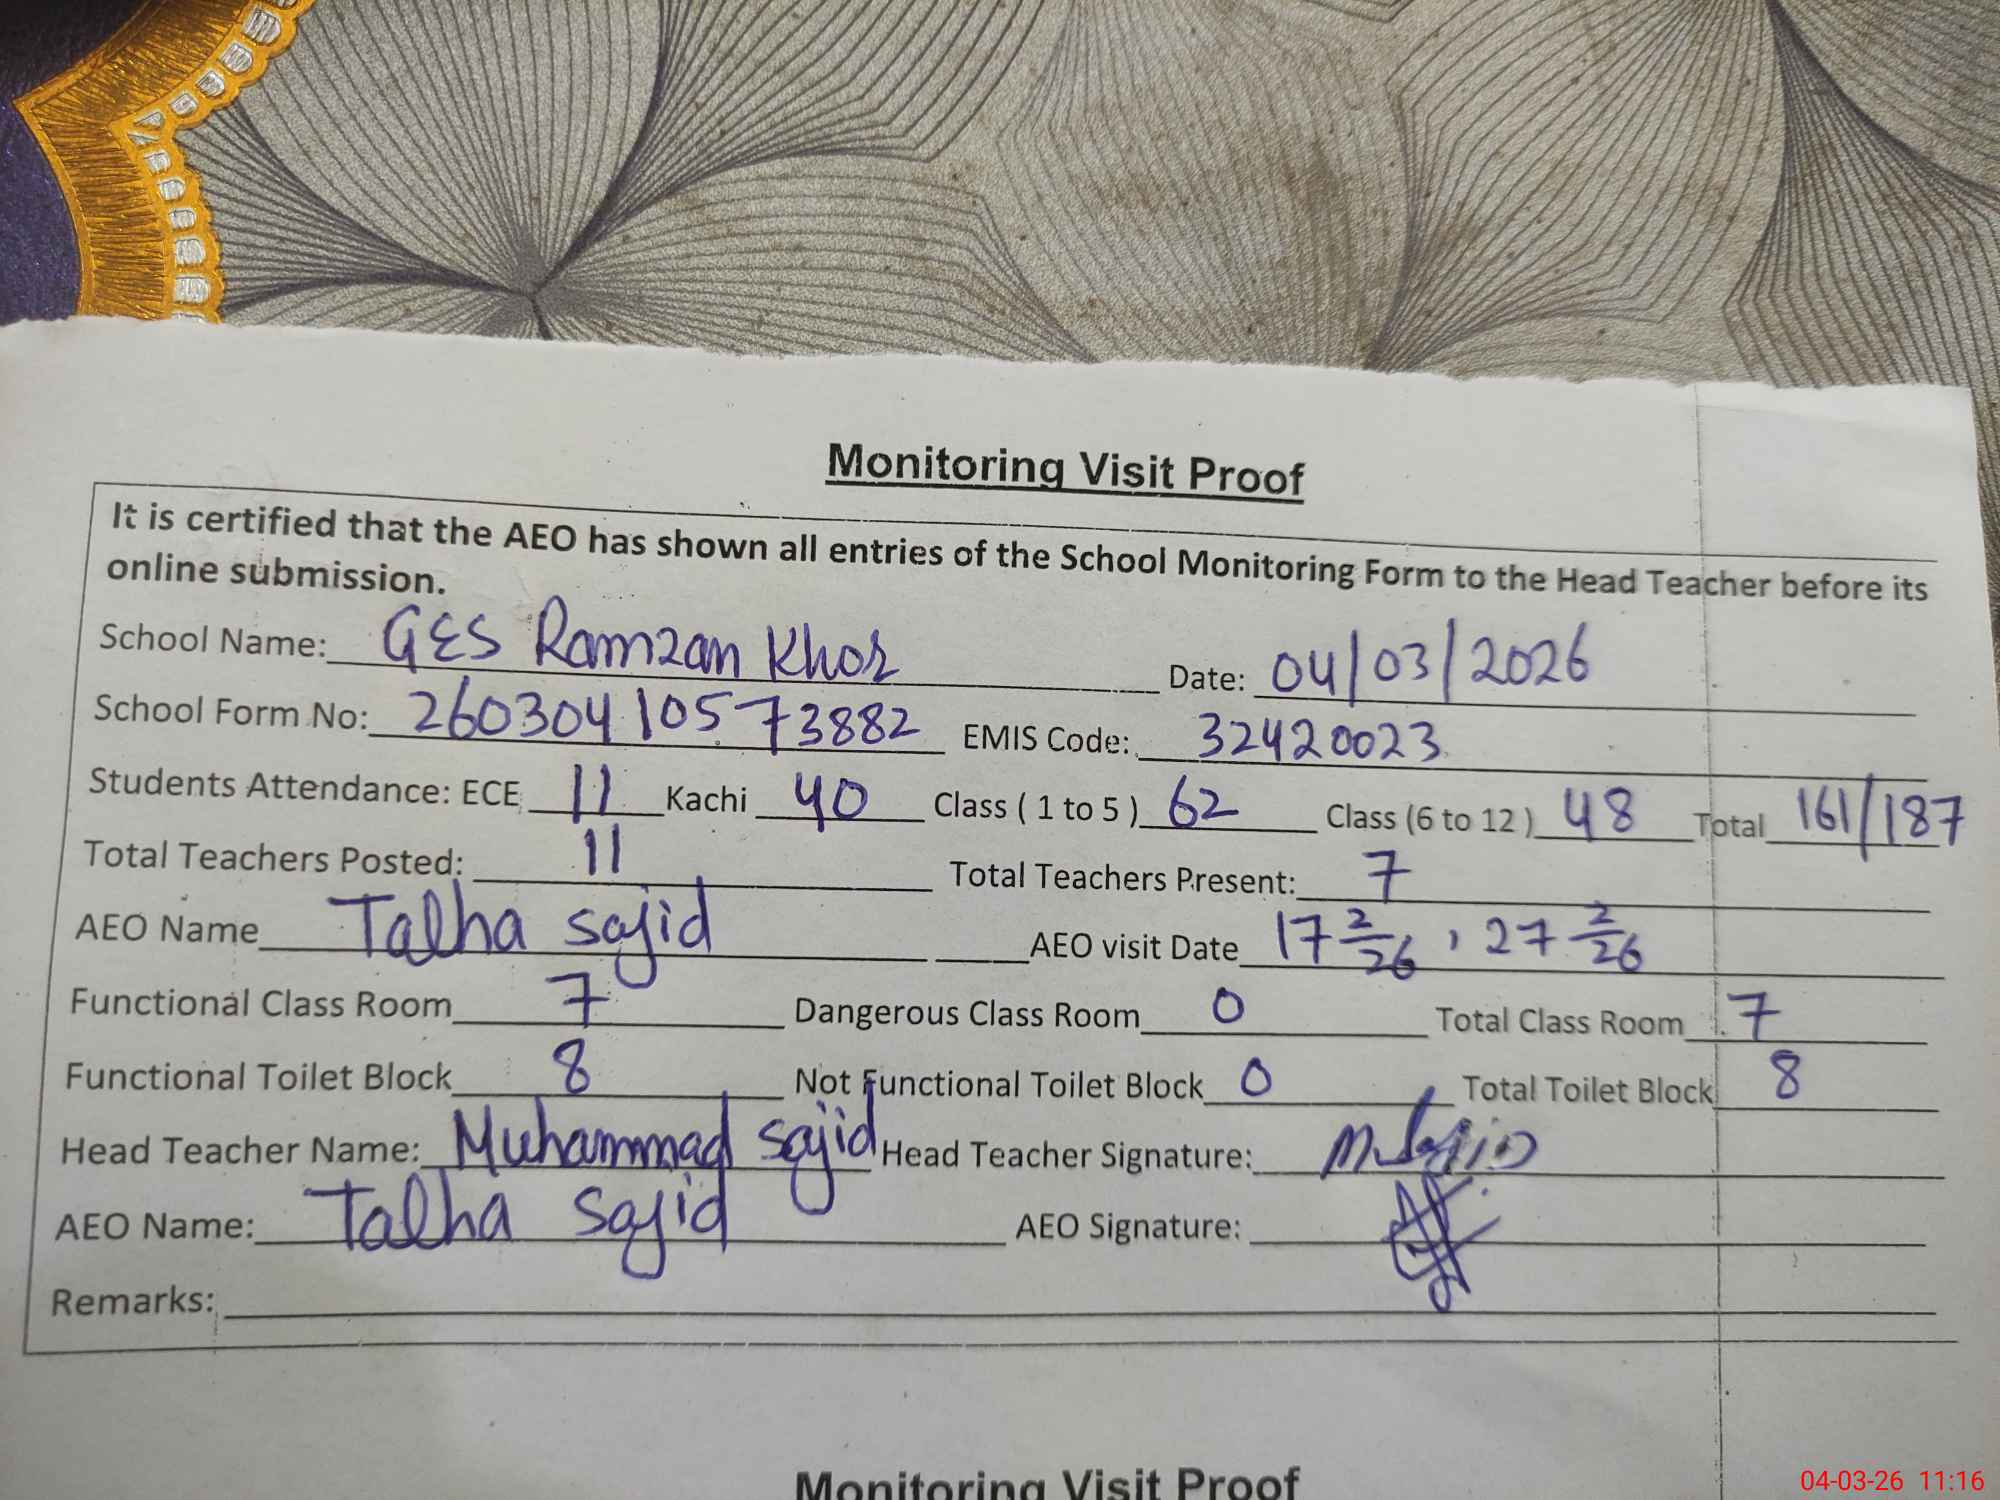 Monitoring Visit Proof
It is certified that the AEO has shown all entries of the School Monitoring Form to the Head Teacher before its
online submission.
School Name: GES Ramzan Khor Date: 04/03/2026
School Form No: 26030410573882 EMIS Code: 32420023
Students Attendance: ECE 11 Kachi 40 Class ( 1 to 5 ) 62 Class (6 to 12 ) 48 Total 161/187
Total Teachers Posted: 11 Total Teachers Present: 7
AEO Name Talha sajid AEO visit Date 17 2/26 , 27 2/26
Functional Class Room 7 Dangerous Class Room 0 Total Class Room 7
Functional Toilet Block 8 Not Functional Toilet Block 0 Total Toilet Block 8
Head Teacher Name: Muhammad sajid Head Teacher Signature:
AEO Name: Talha sajid AEO Signature:
Remarks:
Monitoring Visit Proof
04-03-26 11:16